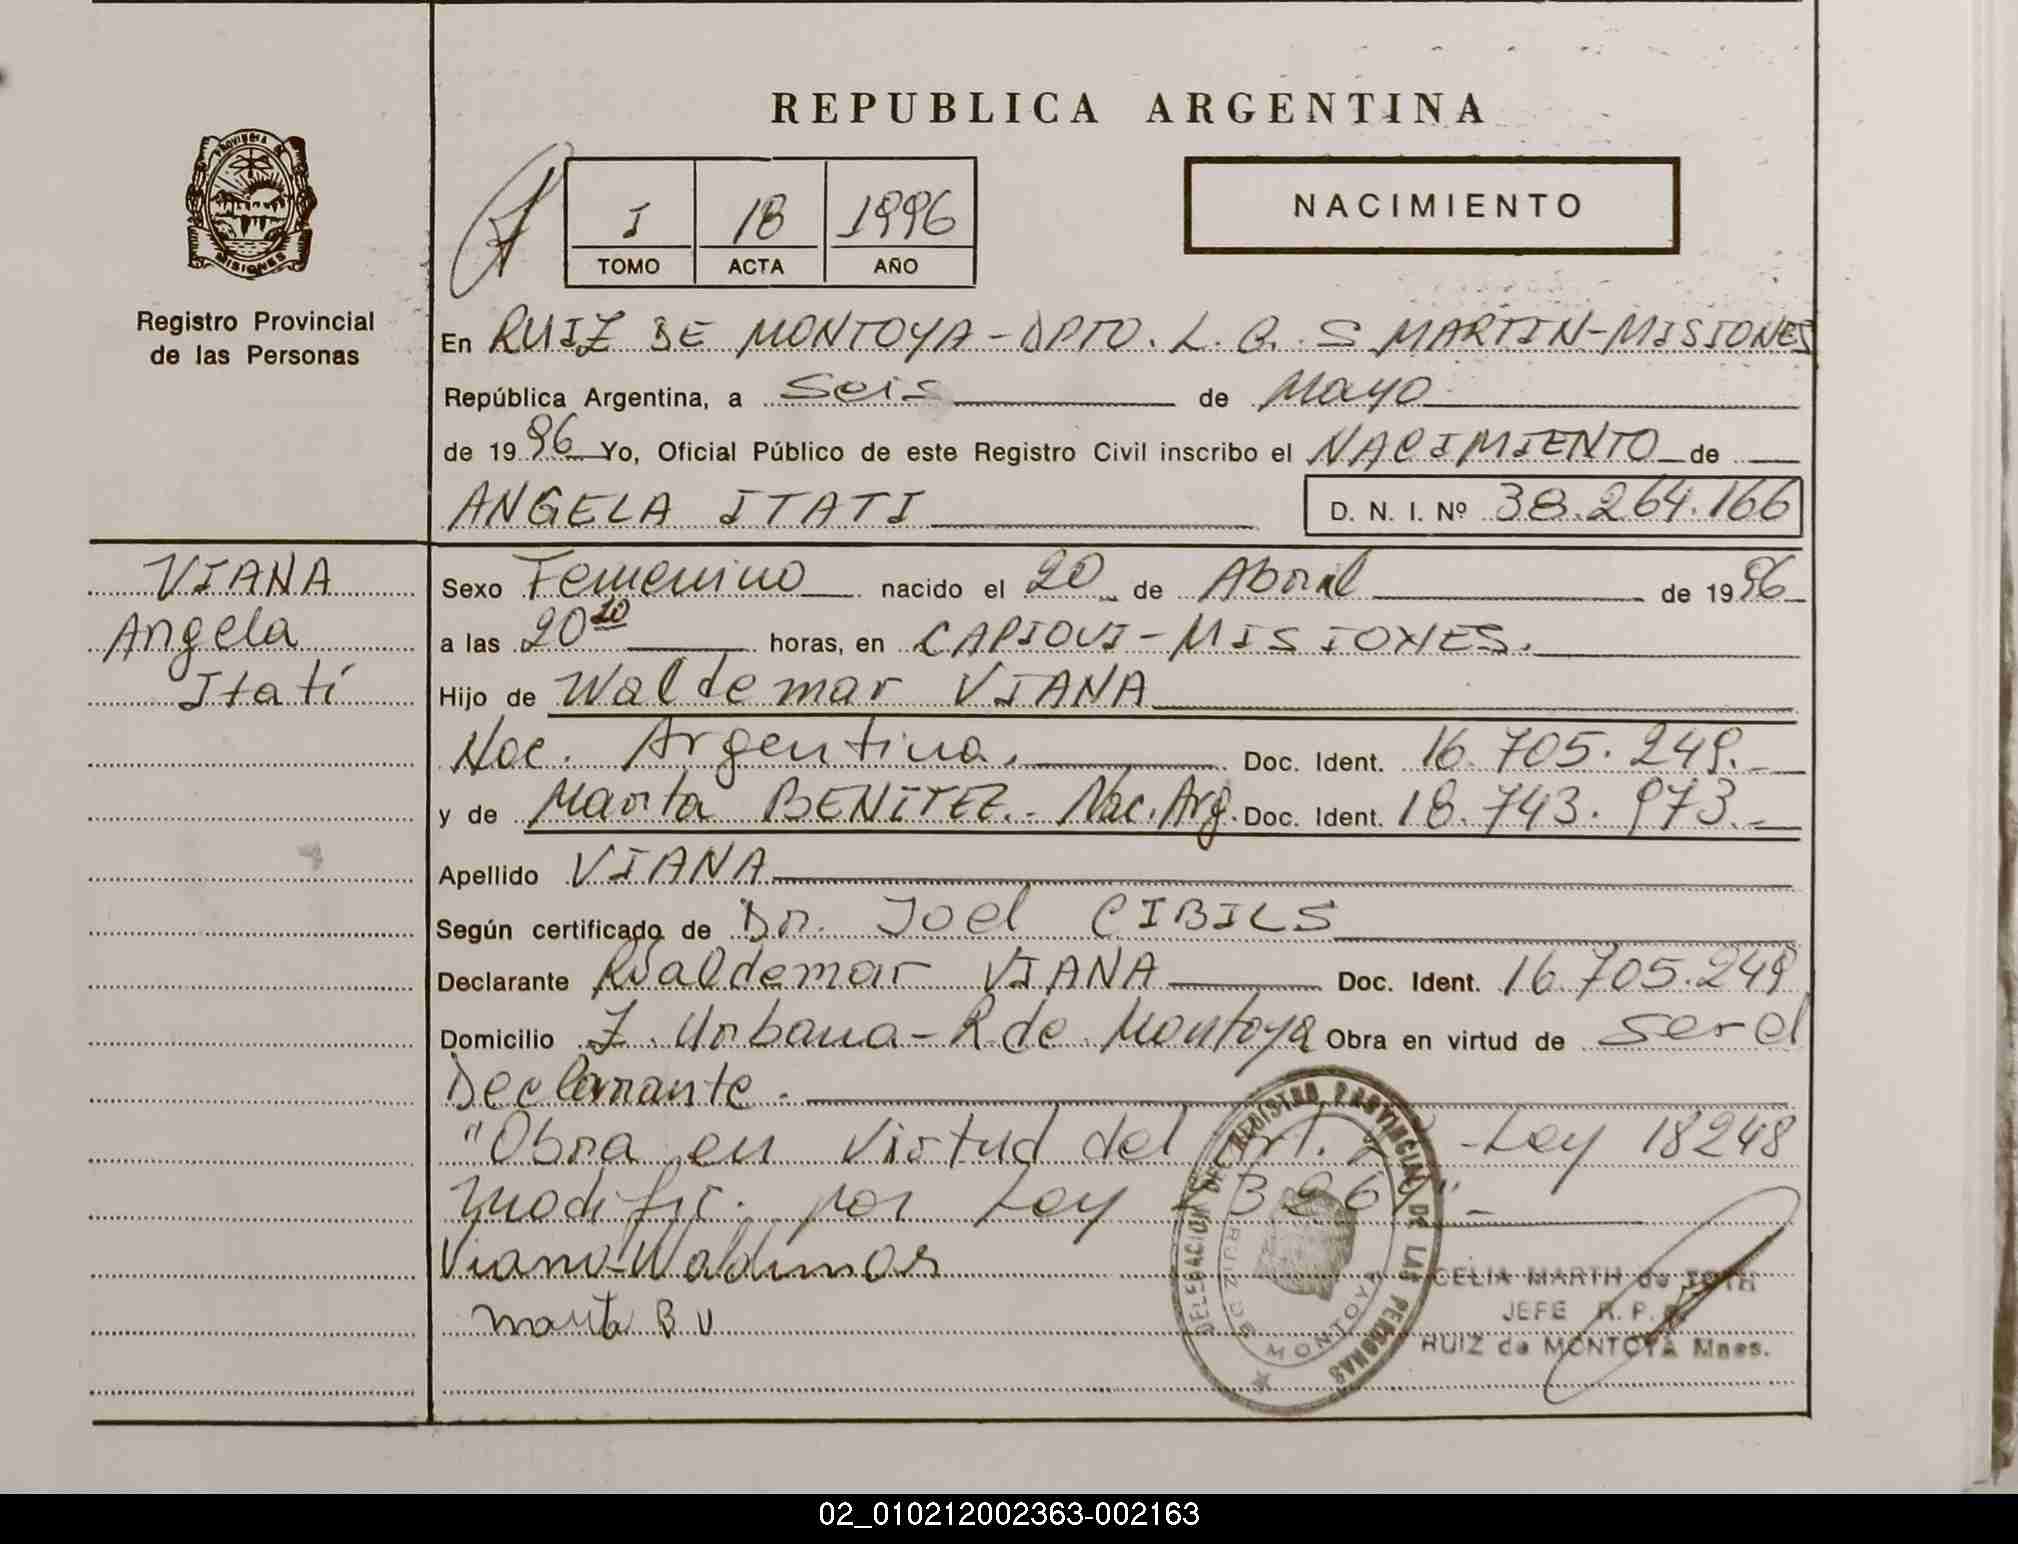 REPUBLICA ARGENTINA
PROVINCIA DE
MISIONES
Registro Provincial
de las Personas
I 18 1996
TOMO ACTA AÑO
NACIMIENTO
En RUIZ DE MONTOYA - DPTO. L. G. S MARTIN - MISIONES
República Argentina, a Seis de Mayo
de 1996 Yo, Oficial Público de este Registro Civil inscribo el NACIMIENTO de
ANGELA ITATI D. N. I. Nº 38.264.166
VIANA
Angela
Itatí
Sexo Femenino nacido el 20 de Abril de 1996
a las 20 10 horas, en CAPIOVI - MISIONES.
Hijo de Waldemar VIANA
Nac. Argentina. Doc. Ident. 16.705.249.
y de Marta BENITEZ.- Nac. Arg. Doc. Ident. 18.743.973.-
Apellido VIANA
Según certificado de Dr. Joel CIBILS
Declarante Waldemar VIANA Doc. Ident. 16.705.249
Domicilio Z. Urbana - R. de Montoya Obra en virtud de ser el
Declarante.
"Obra en virtud del Art. 2º - Ley 18248
modific. por Ley 23264".-
Viana Waldemar
Marta B V
DELEGACION DEL REGISTRO PROVINCIAL DE LAS PERSONAS
RUIZ DE MONTOYA
CELIA MARTH de TOTH
JEFE R. P. P.
RUIZ de MONTOYA Mnes.
02_010212002363-002163